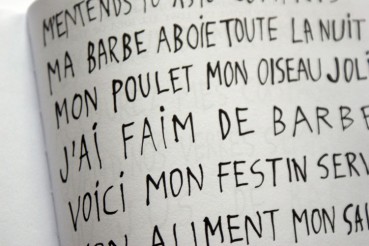 M'ENTENDS TU
MA BARBE ABOIE TOUTE LA NUIT
MON POULET MON OISEAU JOLI
J'AI FAIM DE BARBE
VOICI MON FESTIN SERV
MON ALIMENT MON SA